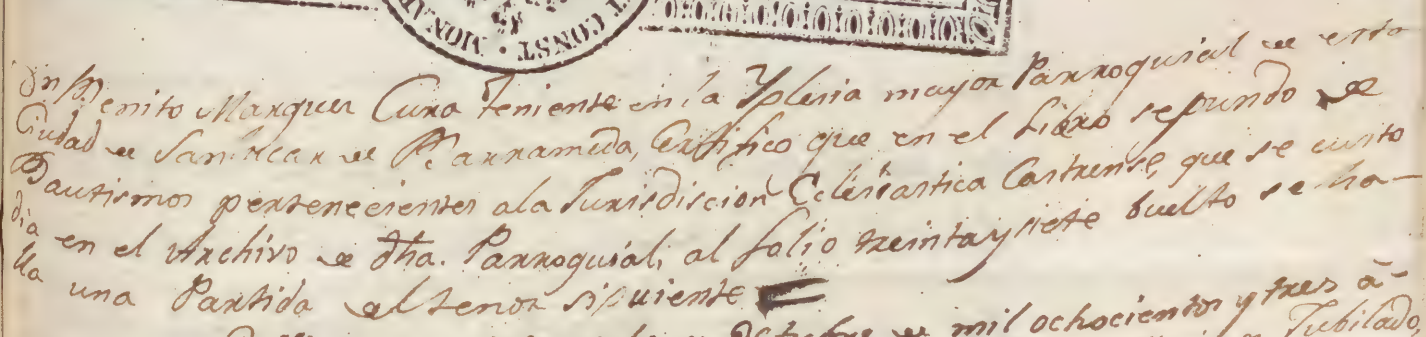 MONAR
Y CONST.
Dn Benito Marques Cura teniente en la Yglesia mayor Parroquial de esta
Ciudad de Sanlucar de Barrameda, Certifico que en el Libro segundo de
Bautismos pertenecientes ala Jurisdiscion Eclesiastica Castrense, que se custo
dia en el Archivo de dha. Parroquial, al folio treinta y siete buelto se ha-
lla una Partida del tenor siguiente
Octubre de mil ochocientos y tres a
Jubilado,